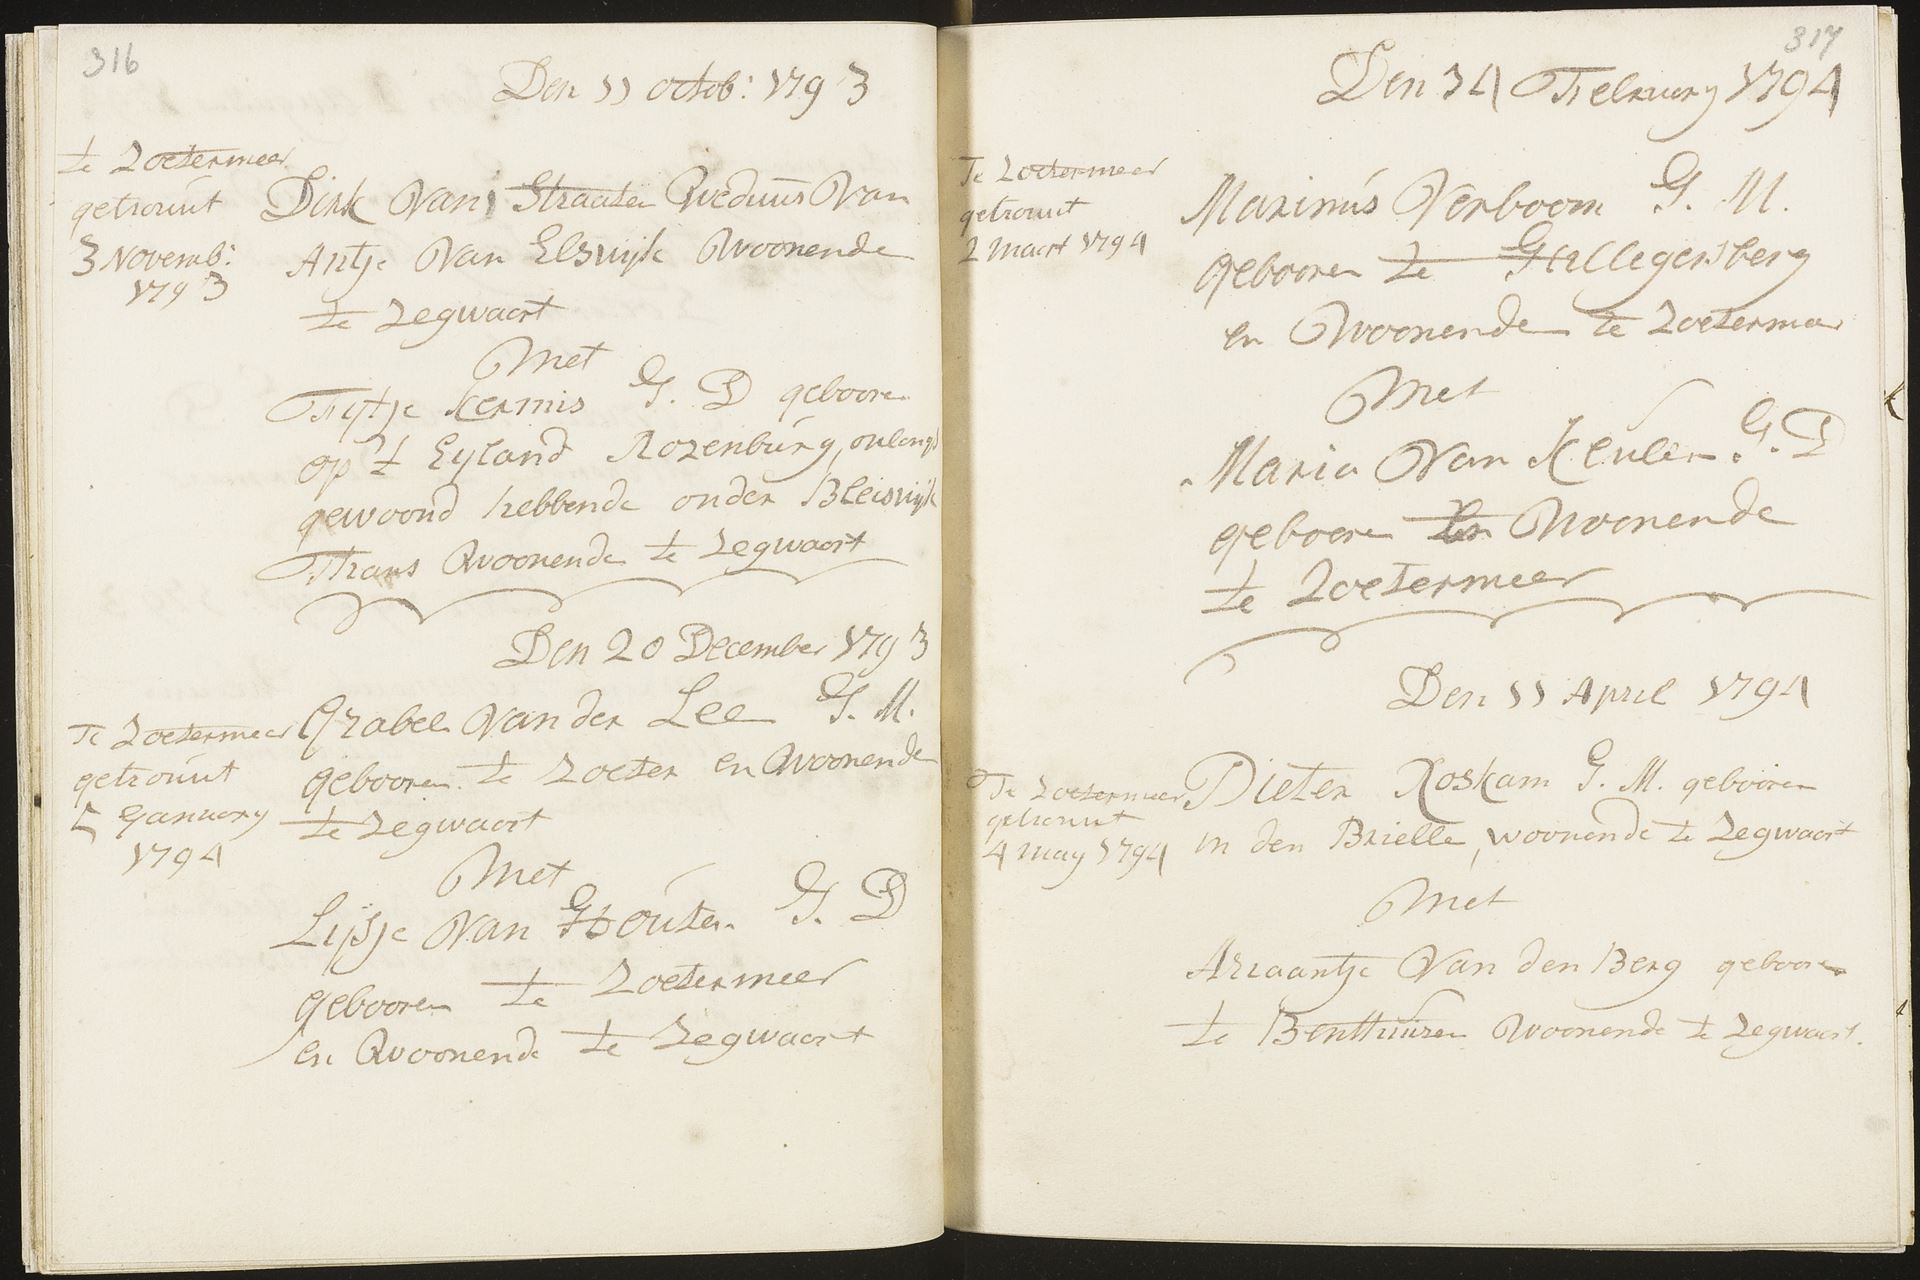 316
Den 11 octob: 1793
te Zoetermeer
getrouut
3 Novemb:
1793
Dirk Van Straaten Weduus Van
Antje Van Elswijk Woonende
te Zegwaart
Met
Fytje Kermis G. D geboore
op 't Eyland Rozenburg, onlangs
gewoond hebbende onder Bleiswijk
Thans Woonende te Zegwaart
Den 20 December 1793
Te Zoetermeer
getrouut
5 January
1794
Van der Lee G. M.
gebooren te Zoeter en Woonende
te Zegwaart
Met
Lijsje Van Houten G. D
gebooren te Zoetermeer
en Woonende te Zegwaart
317
Den 14 February 1794
Te Zoetermeer
getrouut
2 Maart 1794
Marinus Verboom G. M.
gebooren te Hillegersberg
en Woonende te Zoetermeer
Met
Maria Van Keulen G. D
geboore En Woonende
te Zoetermeer
Den 11 April 1794
Te Zoetermeer
getrouut
4 May 1794
Pieter Roskam G. M. gebooren
in den Brielle, woonende te Zegwaart
Met
Ariaantje Van den Berg gebooren
te Benthuisen Woonende te Zegwaart.